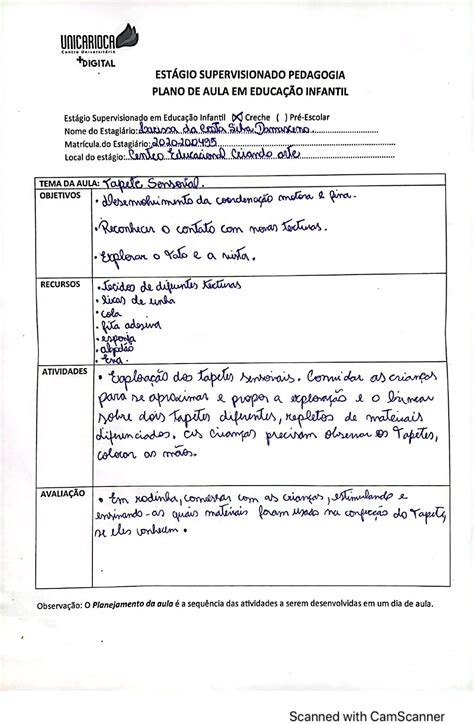 UNICARIOCA
Centro Universitário
+DIGITAL
ESTÁGIO SUPERVISIONADO PEDAGOGIA
PLANO DE AULA EM EDUCAÇÃO INFANTIL
Estágio Supervisionado em Educação Infantil (X) Creche ( ) Pré-Escolar
Nome do Estagiário: Larissa da Costa Silva Damasceno
Matrícula do Estagiário: 2020200495
Local do estágio: Centro Educacional Criando arte
TEMA DA AULA: Tapete Sensorial.
OBJETIVOS
• Desenvolvimento da coordenação motora e fina.
• Reconhecer o contato com novas texturas.
• Explorar o tato e a vista.
RECURSOS
• Tecidos de diferentes texturas
• lixas de unha
• cola
• fita adesiva
• esponja
• algodão
• Eva.
ATIVIDADES
• Exploração dos tapetes sensoriais. Convidar as crianças
para se aproximar e propor a exploração e o brincar
sobre dois tapetes diferentes, repletos de materiais
diferenciados. As crianças precisam observar os Tapetes,
colocar as mãos.
AVALIAÇÃO
• Em rodinha, conversar com as crianças, estimulando e
ensinando-as quais materiais foram usado na confecção do Tapete,
se eles conhecem.
Observação: O Planejamento da aula é a sequência das atividades a serem desenvolvidas em um dia de aula.
Scanned with CamScanner